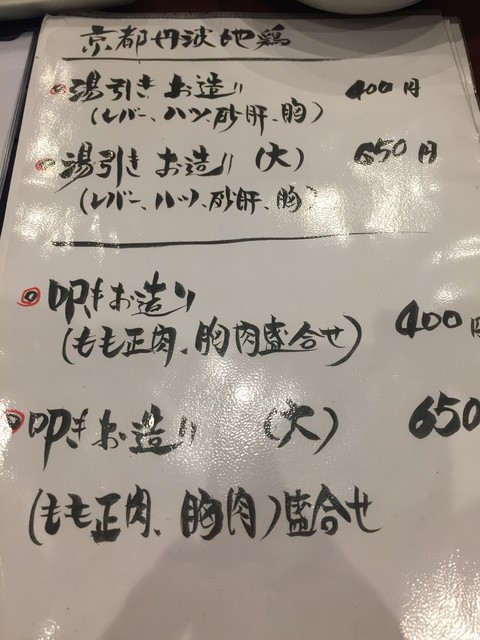 京都丹波地鶏
湯引きお造り 400円
(レバー、ハツ、砂肝、胸)
湯引きお造り (大) 650円
(レバー、ハツ、砂肝、胸)
叩きお造り 400円
(もも正肉、胸肉盛合せ)
叩きお造り (大) 650
(もも正肉、胸肉)盛合せ